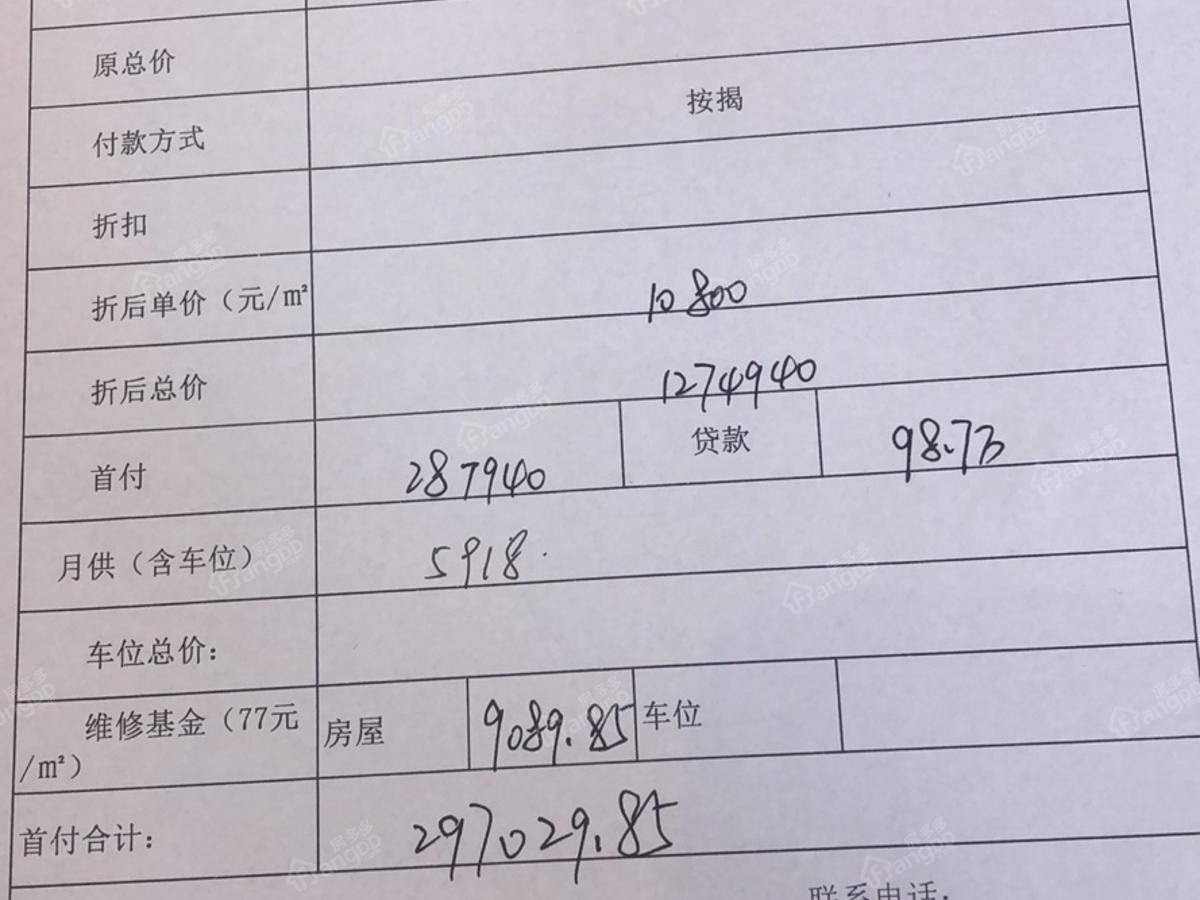 原总价
付款方式 按揭
折扣
折后单价（元/㎡ 10800
折后总价 1274940
首付 287940 贷款 98.73
月供（含车位） 5918.
车位总价：
维修基金（77元/㎡） 房屋 9089.85 车位
首付合计： 297029.85
联系电话：